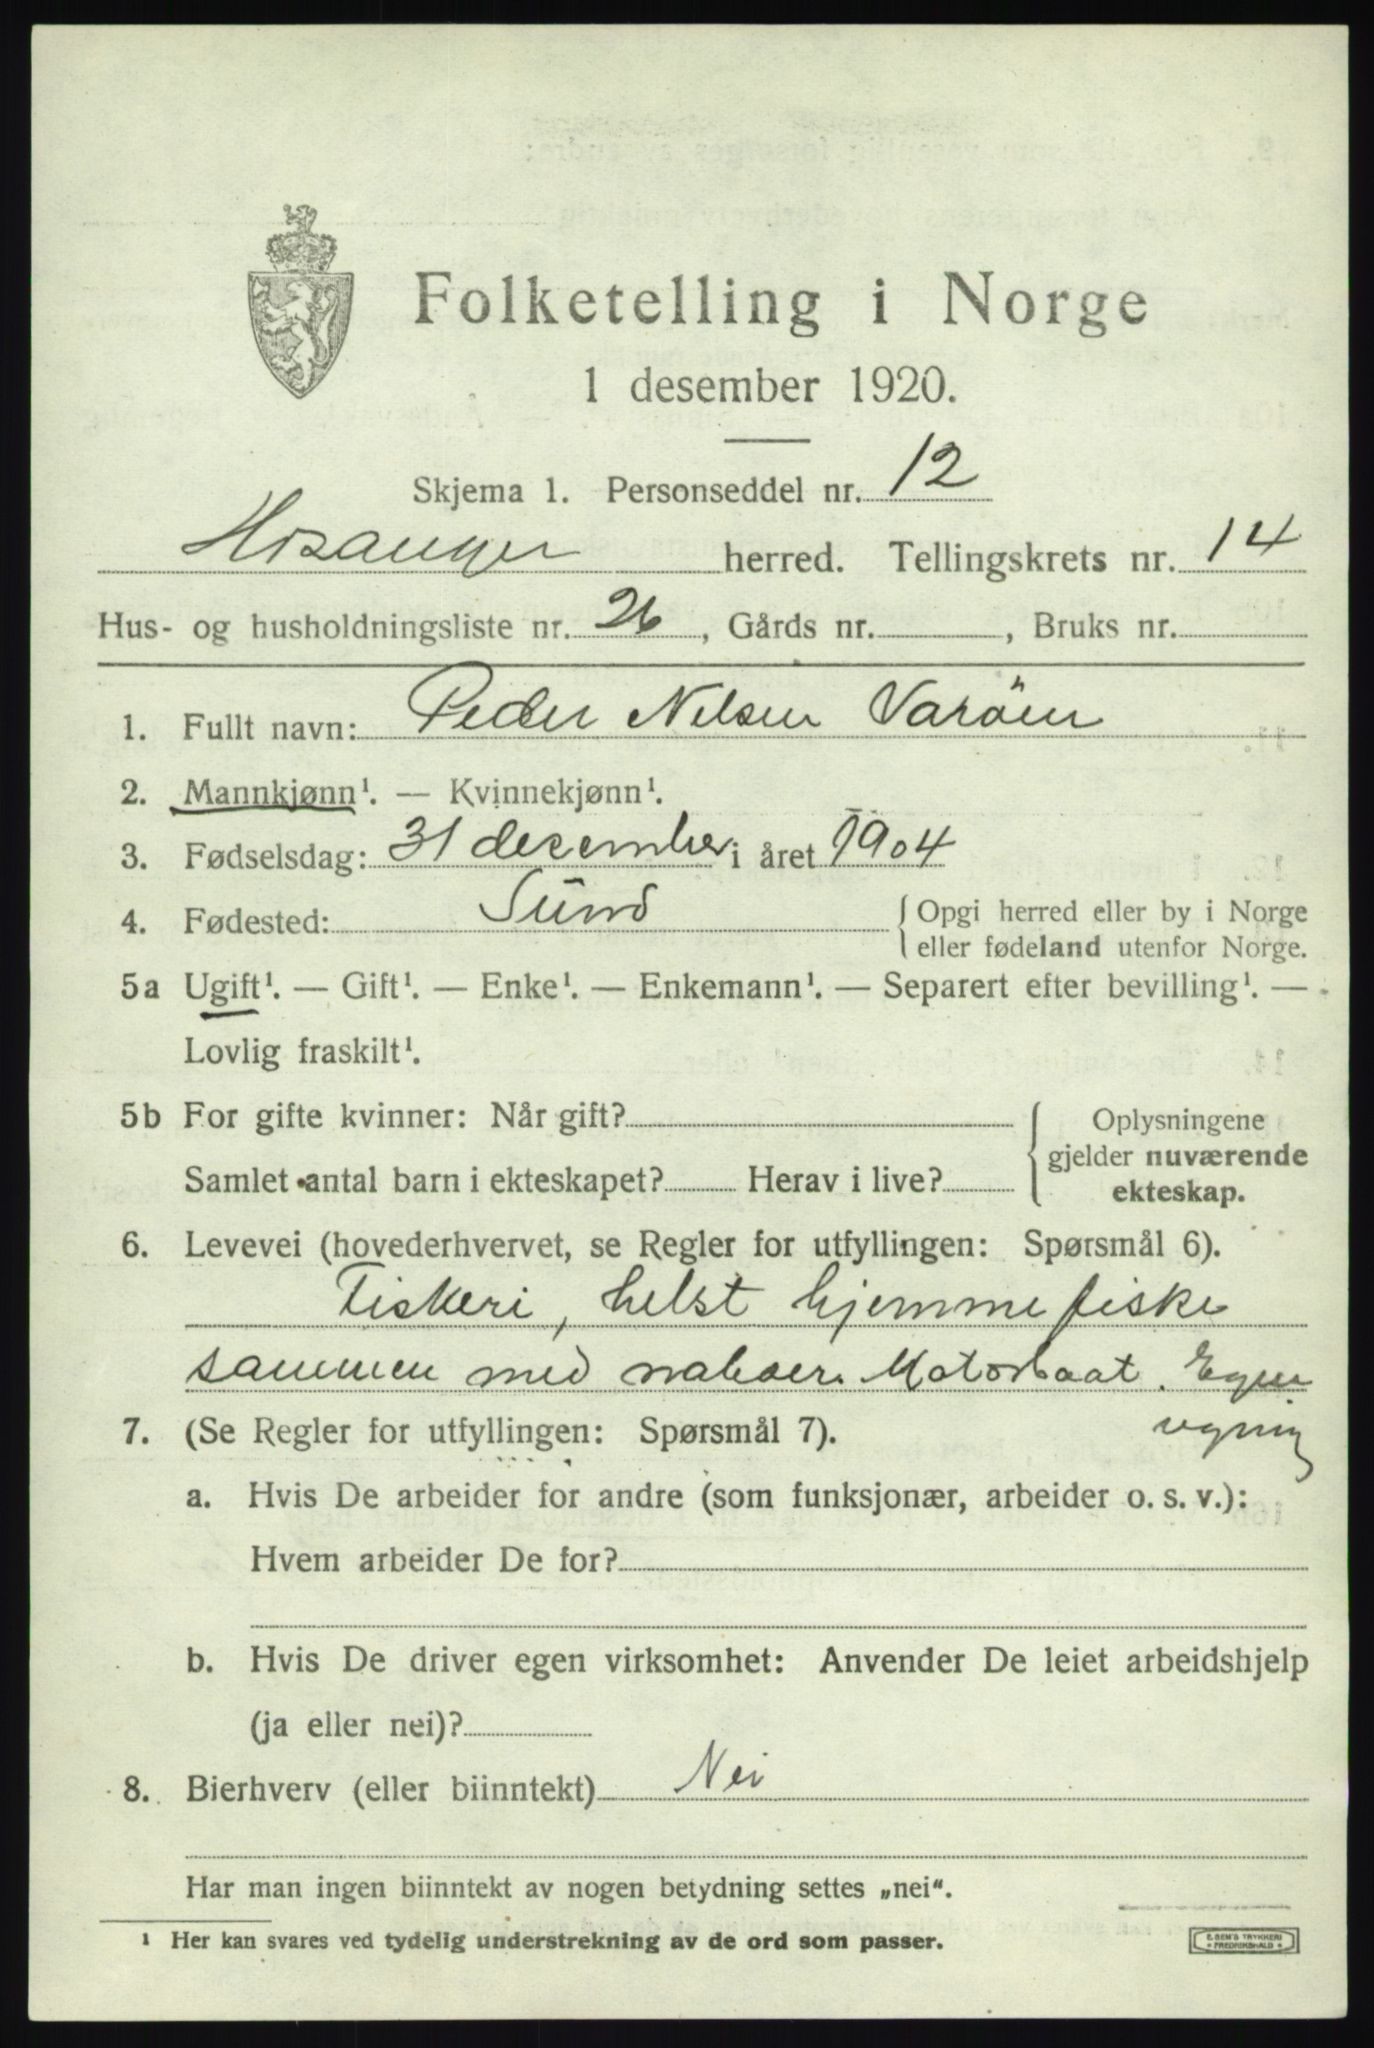 Folketelling i Norge
1 desember 1920.
Skjema 1. Personseddel nr. 12
Hosanger herred. Tellingskrets nr. 14
Hus- og husholdningsliste nr. 26, Gårds nr. , Bruks nr.
1. Fullt navn: Peder Nelsen Varöen
2. Mannkjønn¹. — Kvinnekjønn¹.
3. Fødselsdag: 31 desember i året 1904
4. Fødested: Sund { Opgi herred eller by i Norge
eller fødeland utenfor Norge.
5a Ugift¹. — Gift¹. — Enke¹. — Enkemann¹. — Separert efter bevilling¹. —
Lovlig fraskilt¹.
5b For gifte kvinner: Når gift? { Oplysningene
gjelder nuværende
Samlet antal barn i ekteskapet? Herav i live? ekteskap.
6. Levevei (hovederhvervet, se Regler for utfyllingen: Spørsmål 6).
Fiskeri, helst hjemmefiske
sammen med naboer. Motorbaat. Egen
7. (Se Regler for utfyllingen: Spørsmål 7).
a. Hvis De arbeider for andre (som funksjonær, arbeider o. s. v.):
Hvem arbeider De for?
b. Hvis De driver egen virksomhet: Anvender De leiet arbeidshjelp
(ja eller nei)?
8. Bierhverv (eller biinntekt) Nei
Har man ingen biinntekt av nogen betydning settes „nei“.
¹ Her kan svares ved tydelig understrekning av de ord som passer.
E. SEM'S TRYKKERI
FREDRIKSHALD